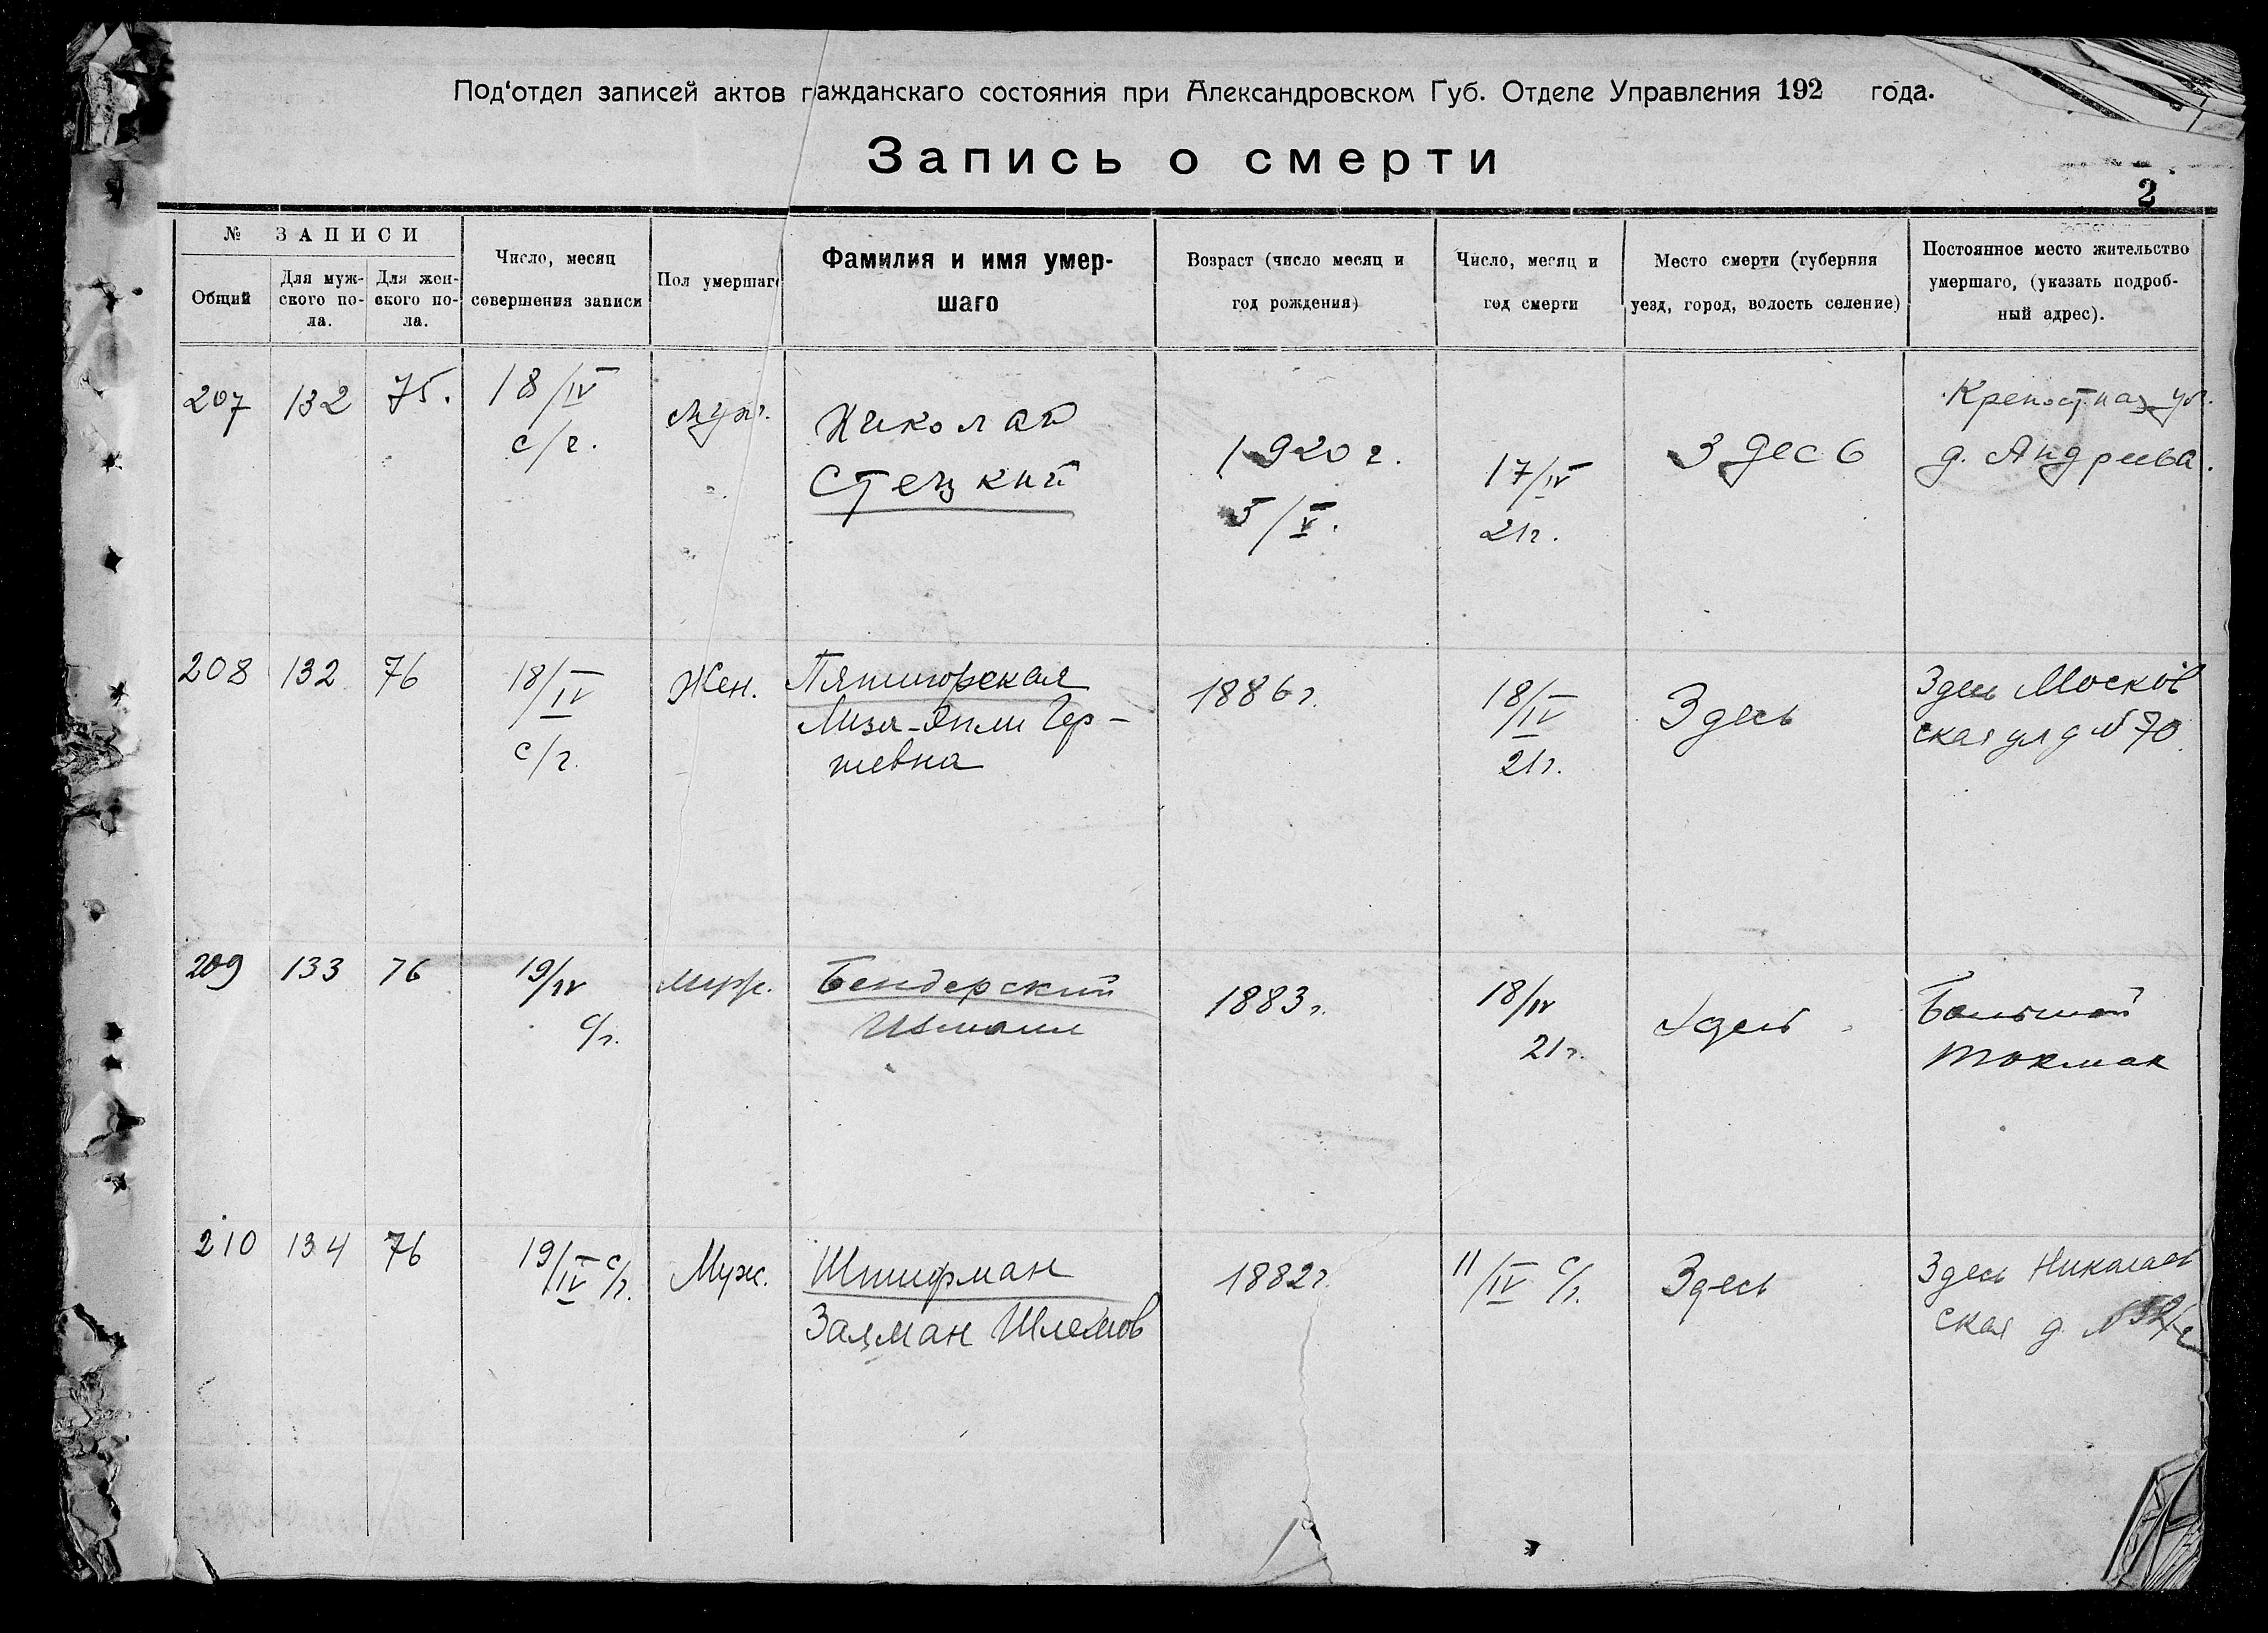 Под‘отдел записей актов гражданскаго состояния при Александровском Губ. Отделе Управления 192 года.
Запись о смерти
2
№ ЗАПИСИ
Общий
Для муж-
ского по-
ла.
Для жен-
ского по-
ла.
Число, месяц
совершения записи
Пол умершаго
Фамилия и имя умер-
шаго
Возраст (число месяц и
год рождения)
Число, месяц и
год смерти
Место смерти (губерния
уезд, город, волость селение)
Постоянное место жительство
умершаго, (указать подроб-
ный адрес).
207
132
75.
18/IV
с/г.
муж.
Николай
Стецкий
1920 г.
5/V.
17/IV
21г.
Здесь
Крепостная ул.
д. Андреева.
208
132
76
18/IV
с/г.
Жен.
Пятигорская
Лиза-Эпли Гер-
шевна
1886г.
18/IV
21г.
Здесь
Здесь Москов
ская ул д № 70
209
133
76
19/IV
с/г.
муж.
Бендерский
1883г.
18/IV
21г.
Здесь
Большой
Токмак
210
134
76
19/IV с/г.
Муж.
Штифман
Залман Шлемов
1882г.
11/IV с/г.
Здесь
Здесь Николаев
ская д. №